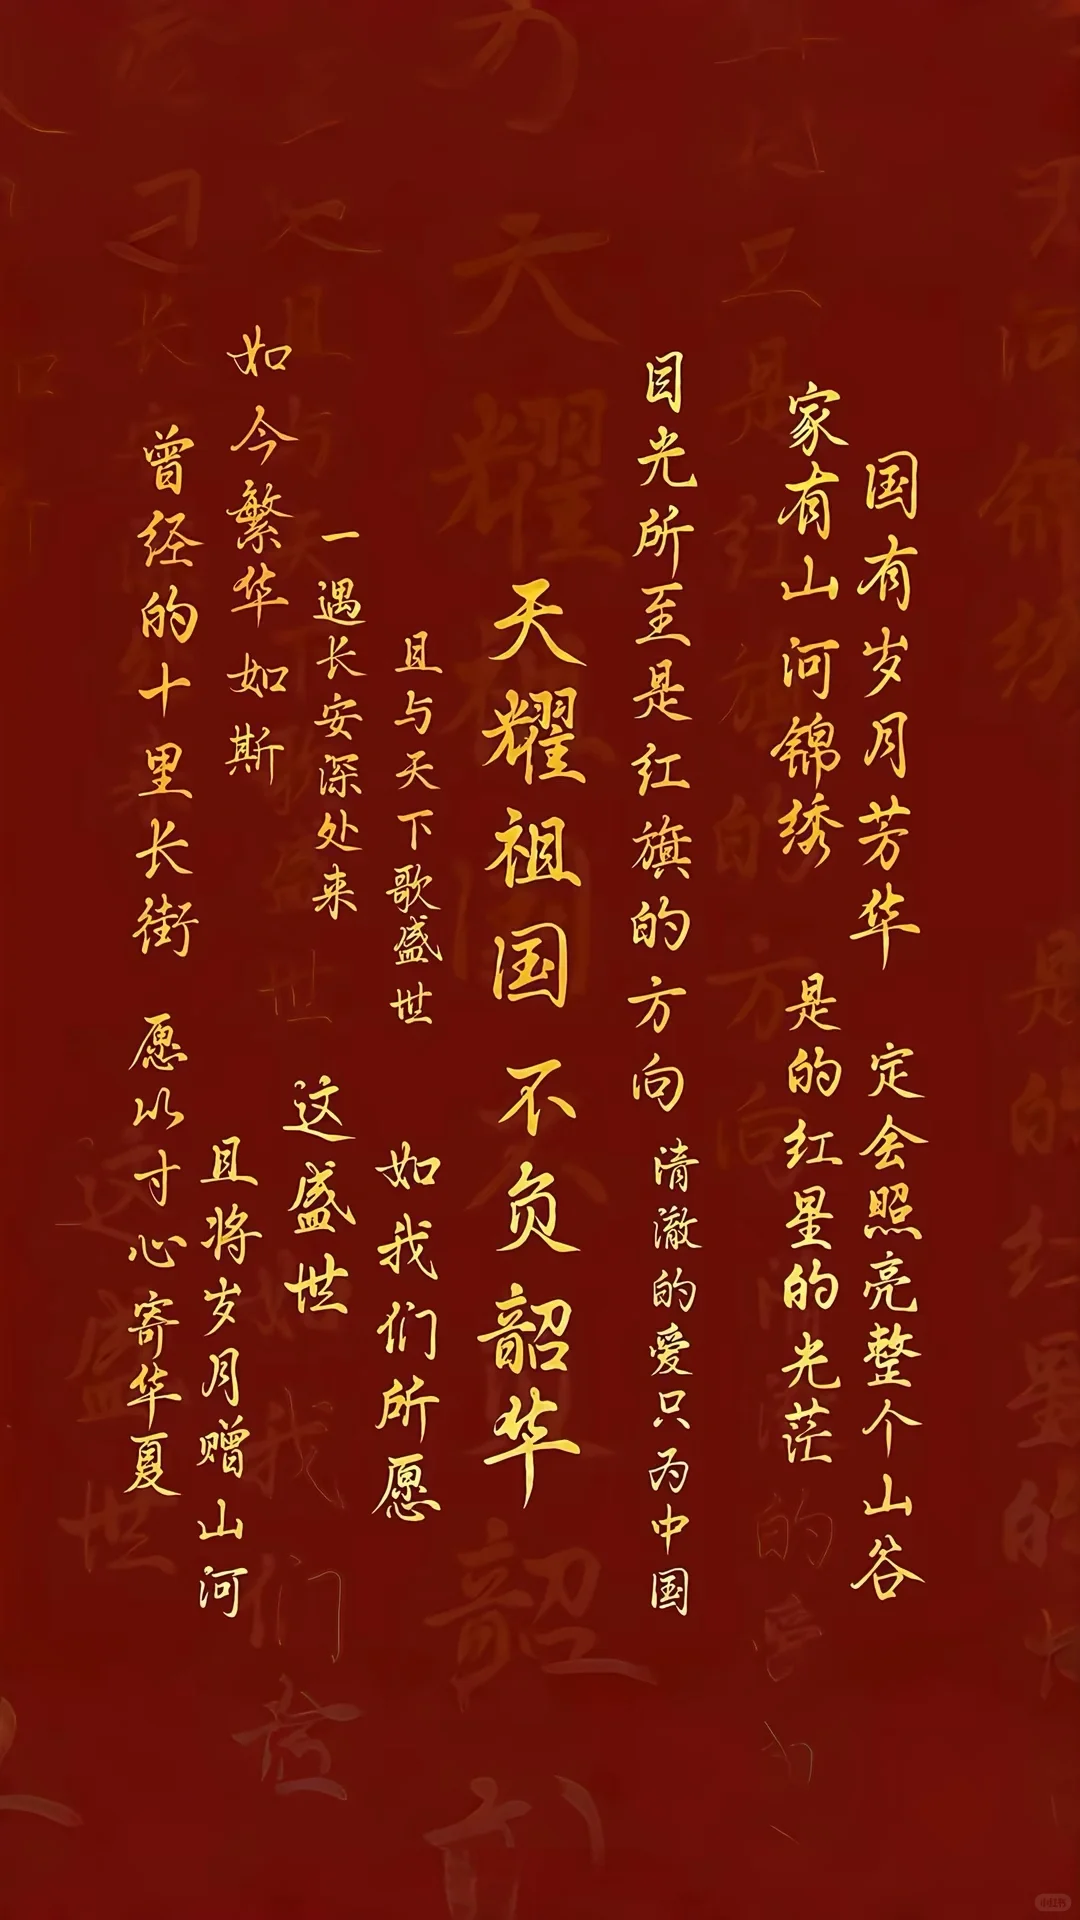 国有岁月芳华
定会照亮整个山谷
家有山河锦绣
是的红星的光茫
目光所至是红旗的方向
清澈的爱只为中国
天耀祖国不负韶华
且与天下歌盛世
如我们所愿
一遇长安深处来
这盛世
如今繁华如斯
且将岁月赠山河
曾经的十里长街
愿以寸心寄华夏
小红书